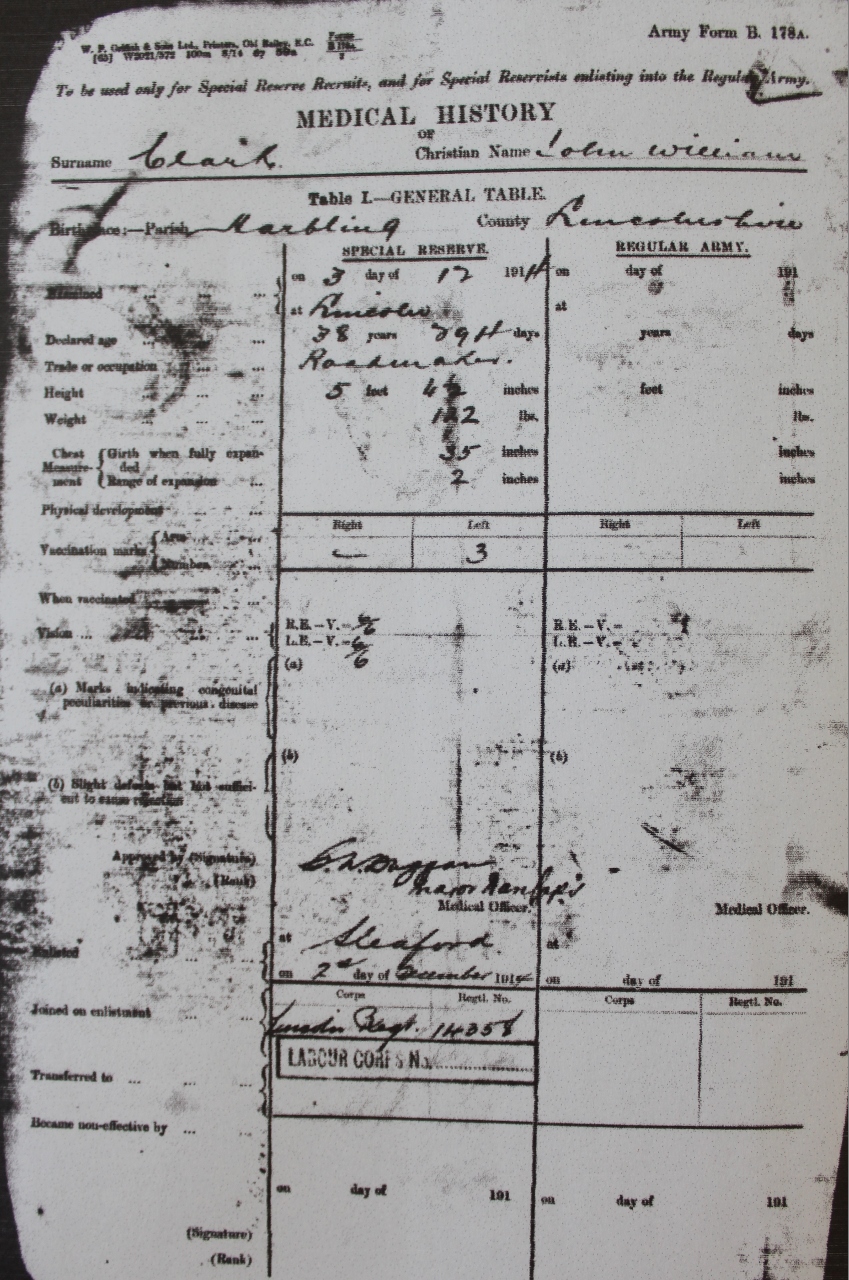 Army Form B. 178A.
W. P. Griffith & Sons Ltd., Printers, Old Bailey, E.C. Forms B 178A
[65] W2021/372 100m 8/14
To be used only for Special Reserve Recruits, and for Special Reservists enlisting into the Regular Army.
MEDICAL HISTORY
OF
Surname Clark. Christian Name John William
Table I.—GENERAL TABLE.
Birthplace:—Parish County Lincolnshire
SPECIAL RESERVE. REGULAR ARMY.
Examined ... ... ... on 3 day of 12 1914 on day of 191
at Lincoln at
Declared age ... ... ... 38 years days years days
Trade or occupation ... ... Roadmaker.
Height ... ... ... 5 feet 4½ inches feet inches
Weight ... ... ... lbs. lbs.
Chest Measurement { Girth when fully expanded 35 inches inches
Range of expansion ... 2 inches inches
Physical development ... ...
Right Left Right Left
Vaccination marks { Arm ... ...
Number — 3
When vaccinated ...
Vision ... ... ... R.E.—V.= 6/6 R.E.—V.=
L.E.—V.= 6/6 L.E.—V.=
(a) (a)
(a) Marks indicating congenital
peculiarities or previous disease
(b) (b)
(b) Slight defects but not suffici-
ent to cause rejection
Approved by (Signature)
(Rank) Major
Medical Officer. Medical Officer.
Enlisted ... ... at Sleaford at
on 2nd day of December 1914 on day of 191
Corps Regtl. No. Corps Regtl. No.
Joined on enlistment ... ... Lincoln Regt.
LABOUR CORPS No.
Transferred to ... ... ...
Became non-effective by ... ...
on day of 191 on day of 191
(Signature)
(Rank)